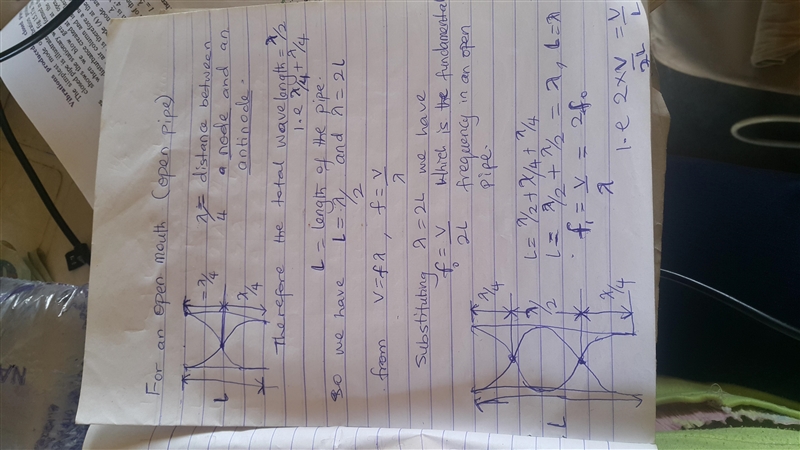 For an open mouth (open pipe)
L
= λ/4
λ/4
λ/4 = distance between
a node and an
antinode.
Therefore the total wavelength = λ/2
i.e λ/4 + λ/4
L = length of the pipe.
so we have L = λ/2 and λ = 2L
from V = fλ, f = V/λ
Substituting λ = 2L we have
f₀ = V/2L Which is the fundamental
frequency in an open
pipe.
L
λ/4
λ/2
λ/4
L = λ/2 + λ/4 + λ/4
L = λ/2 + λ/2 = λ, L = λ
f₁ = V/λ = 2f₀
i.e 2 × V/2L = V/L
Vibration